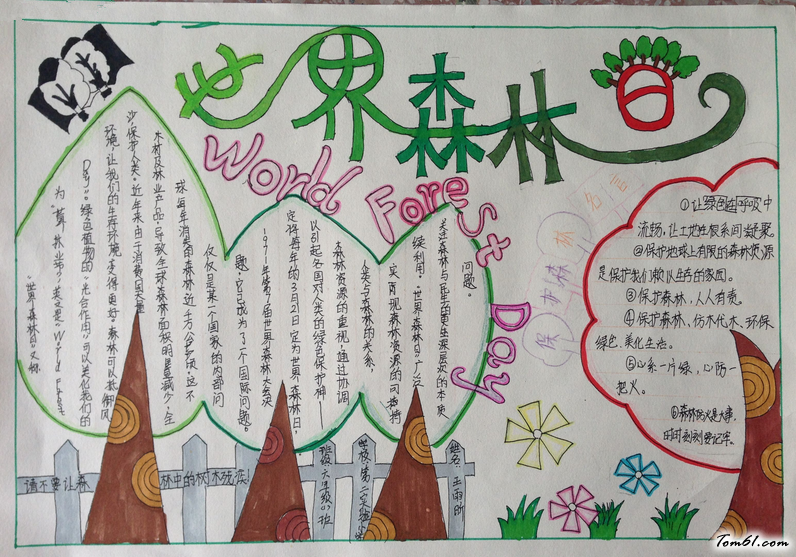 世界森林日
World Forest Day
"世界森林日"又称
Day"。绿色植物的"光合作用"可以美化我们的
环境,让我们的生存环境变得更好。森林可以抵御风
沙,保护人类。近年来由于消费国大量
木材及林业产品,导致全球森林面积明显减少,全
球每年消失的森林近千万公顷,这不
仅仅是某一个国家的内部问
题,它已成为了一个国际问题。
定将每年的3月21日定为世界森林日,
以引起各国对人类的绿色保护神——
森林资源的重视,通过协调
人类与森林的关系,
实现森林资源的可持
续利用。"世界森林日"广泛
关注森林与民生的更生源层次的本质
问题。
保护森林
名言
①让绿色在呼吸中
流畅,让土地在根系间凝聚。
②保护地球上有限的森林资源
是保护我们赖以生存的家园。
③保护森林,人人有责。
④保护森林、仿木代木、环保
绿色、美化生活。
⑤心系一片绿,心防一
把火。
⑥森林防火是大事,
时时刻刻要记牢。
请不要让森
林中的树木残
班级:六年级(3)班
学校:第二实验小
姓名:王雨昕
Tom61.com